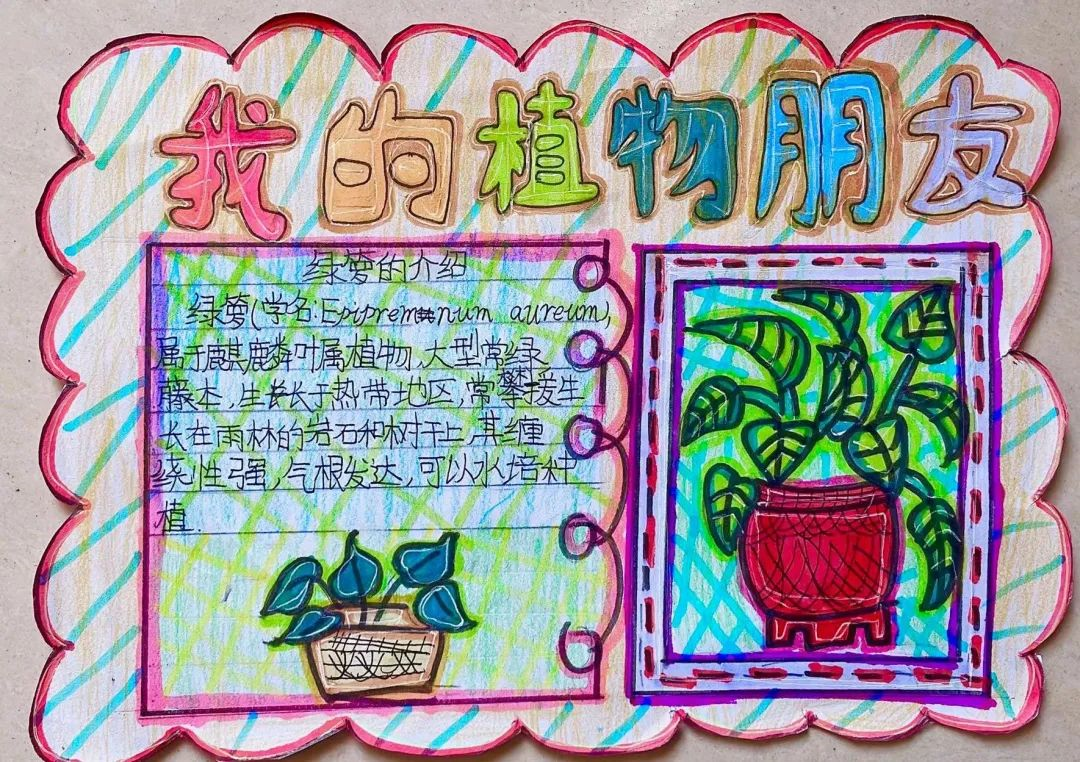 我的植物朋友
绿萝的介绍
绿萝(学名:Epipremnum aureum),
属于麒麟叶属植物,大型常绿
藤本,生长于热带地区,常攀援生
长在雨林的岩石和树干上,其缠
绕性强,气根发达,可以水培种
植.